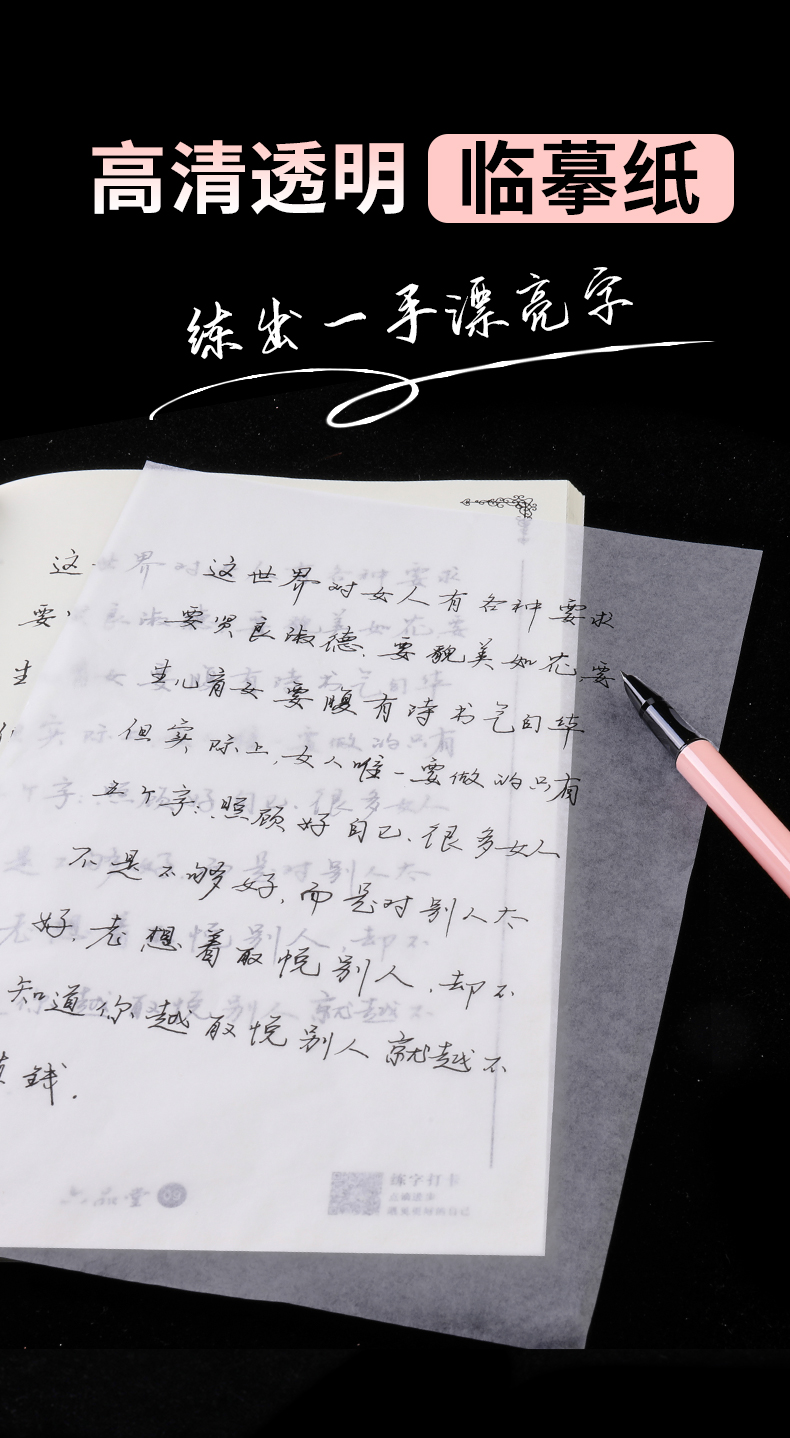 高清透明 临摹纸
练出一手漂亮字
这世界对女人有各种要求
要贤良淑德,要貌美如花,要
生儿育女要腹有诗书气自华
但实际上,女人唯一要做的只有
五个字:照顾好自己.很多女人
不是不够好,而是对别人太
好,老想着取悦别人,却不
知道你越取悦别人就越不
钱.
六品堂
练字打卡